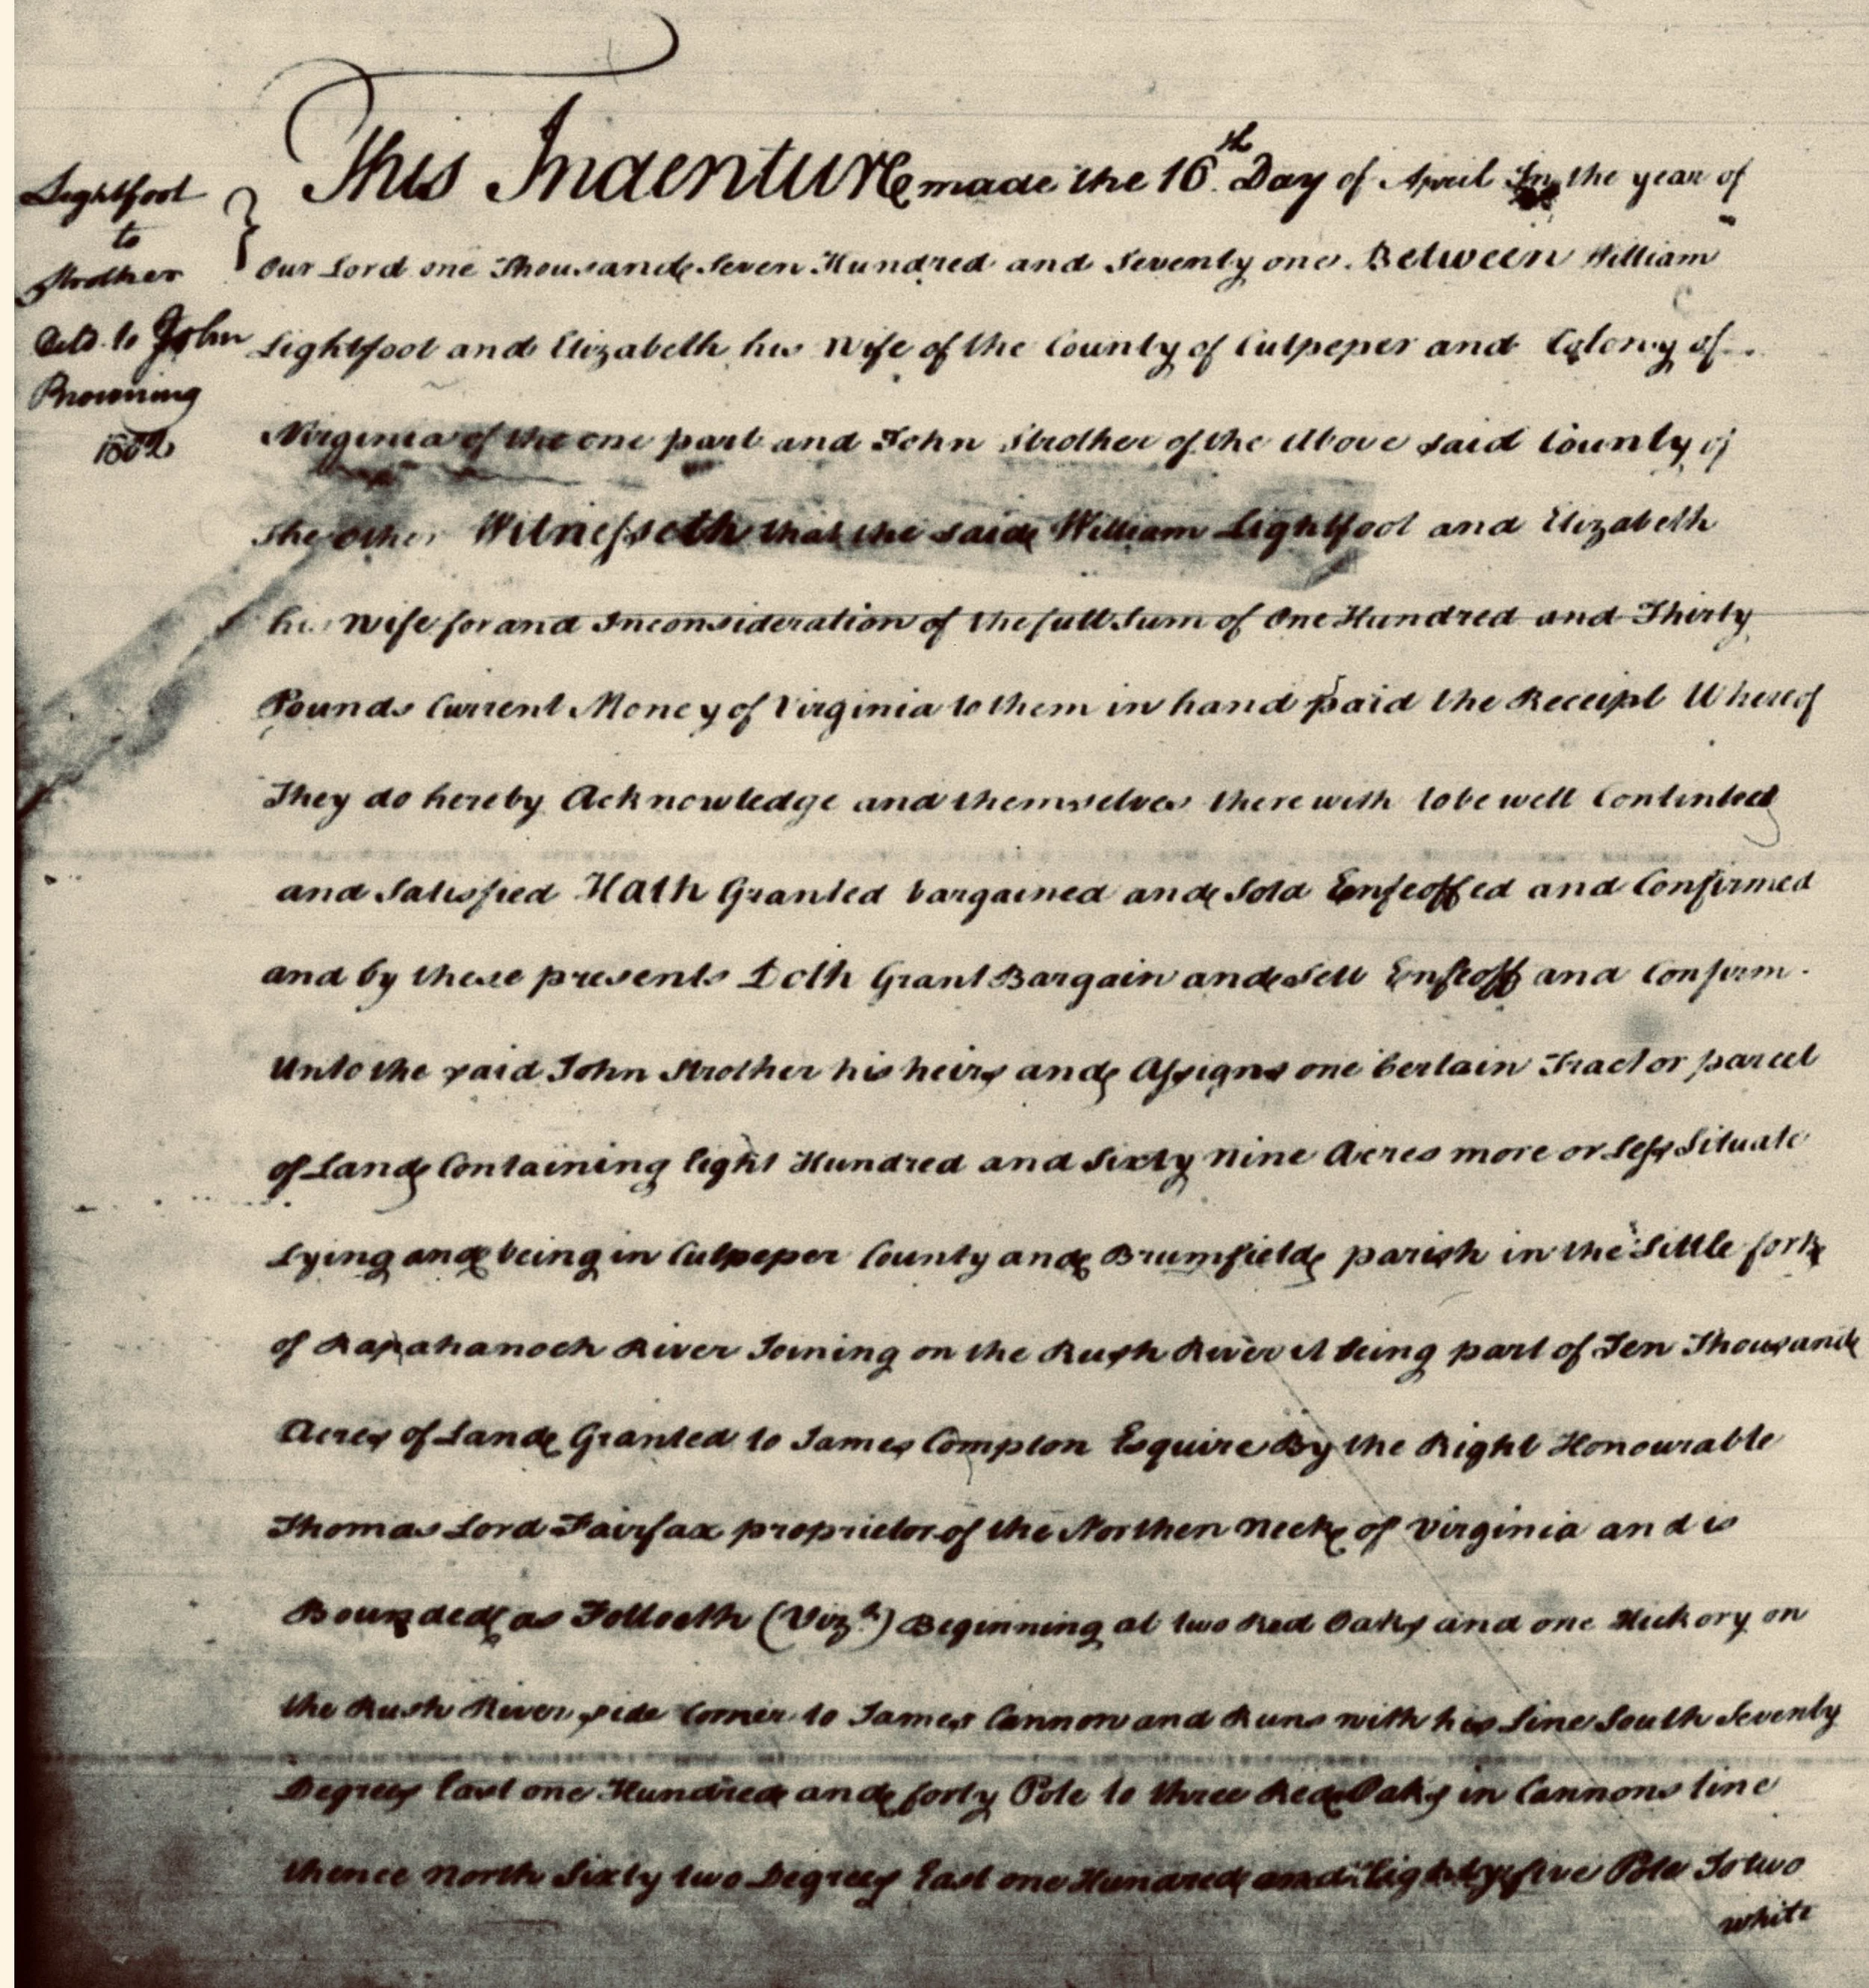 Lightfoot
to
Strother
Deld. to John
Browning
1802
This Indenture made the 16th Day of April In the year of
Our Lord one Thousand Seven Hundred and Seventy one. Between William
Lightfoot and Elizabeth his Wife of the County of Culpeper and Colony of
Virginia of the one part and John Strother of the Above said County of
the Other Witnesseth that the said William Lightfoot and Elizabeth
his Wife for and Inconsideration of the full Sum of One Hundred and Thirty
Pounds Current Money of Virginia to them in hand paid the Receipt Whereof
They do hereby Acknowledge and themselves there with to be well Contented
and Satisfied Hath Granted bargained and Sold Enfeoffed and Confirmed
and by these presents Doth Grant Bargain and Sell Enfeoff and Confirm.
Unto the said John Strother his heirs and Assigns one Certain Tract or parcel
of Land Containing Eight Hundred and Sixty Nine Acres more or Less Situate
Lying and being in Culpeper County and Brumfield parish in the Little fork
of Rapahanock River Joining on the Rush River it being part of Ten Thousand
Acres of Land Granted to James Compton Esquire By the Right Honourable
Thomas Lord Fairfax proprietor of the Northen Neck of Virginia and is
Bounded as Folloeth (Vizt) Beginning at two Red Oaks and one Hickory on
the Rush River side Corner to James Cannon and Runs with his Line South Seventy
Degrees East one Hundred and forty Pole to three Red Oaks in Cannons line
thence North Sixty two Degrees East one Hundred and Eighty five Pole To two
white